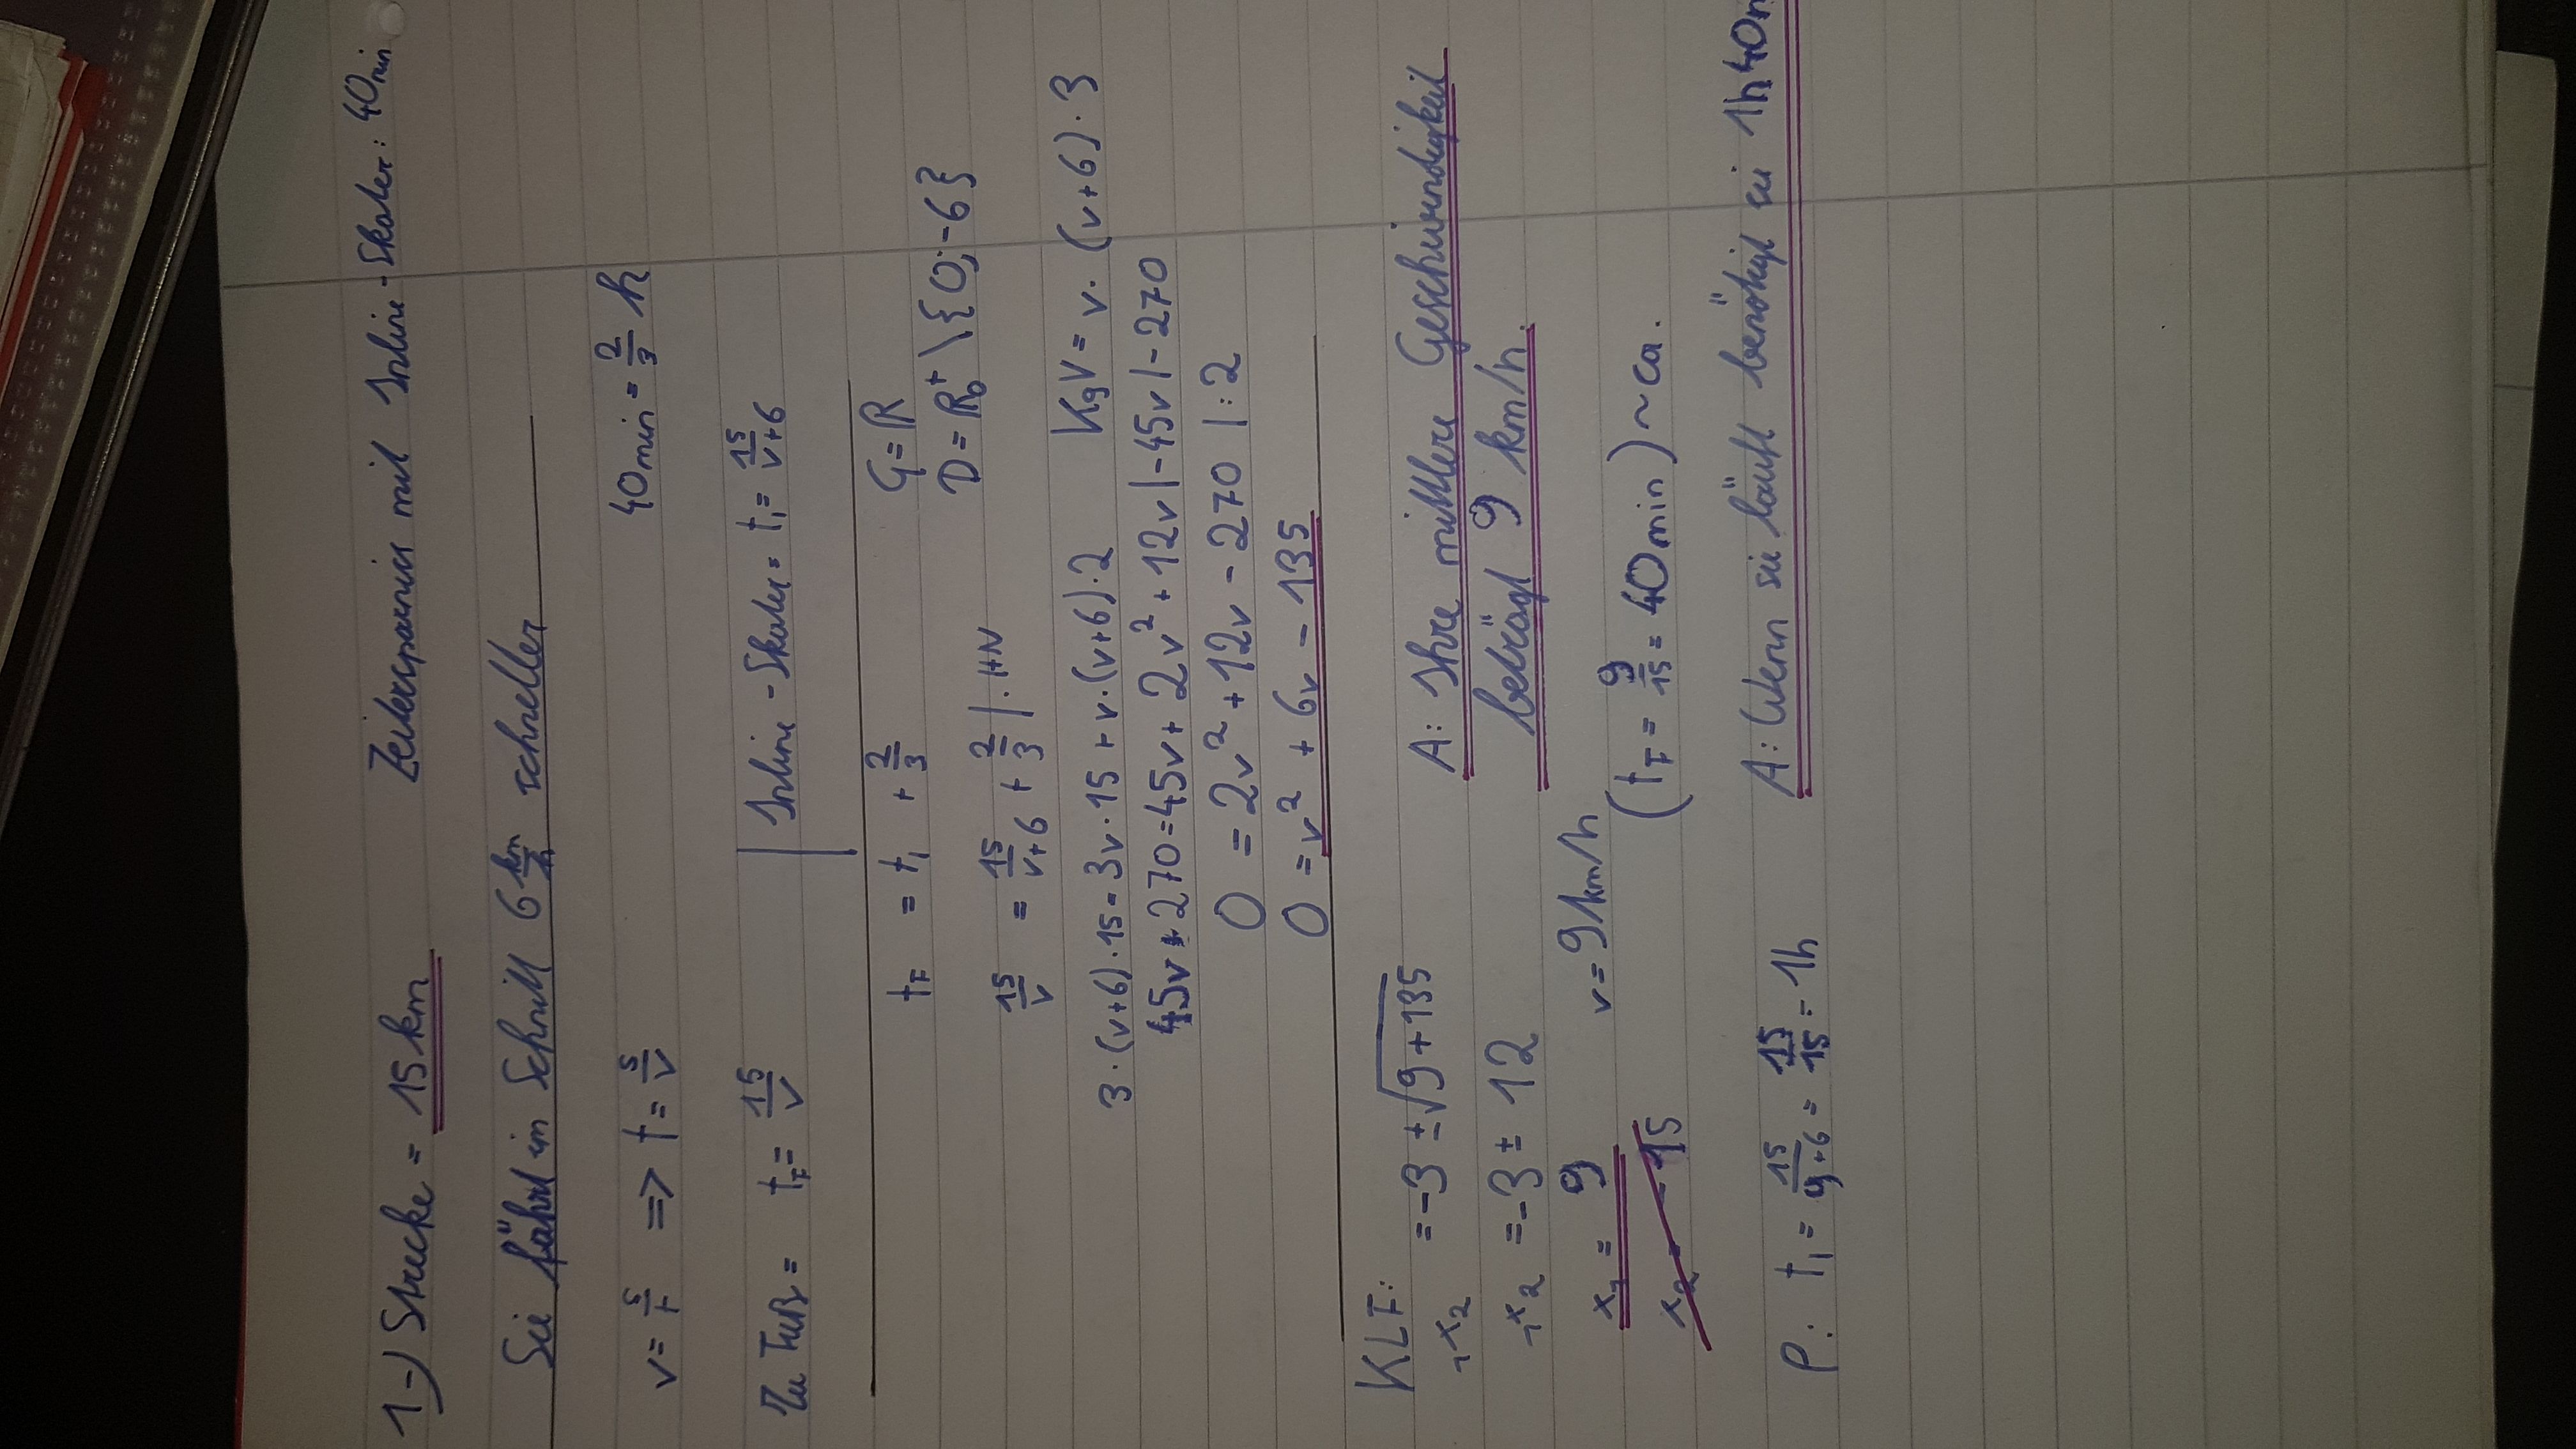 1-) Strecke = 15 km Zeitersparniss mit Inline-Skater: 40min
Sie fährt im Schnitt 6 km/h schneller
v = s/t => t = s/v 40min = 2/3 h
Zu Fuß = t_F = 15/v | Inline-Skater = t_I = 15/(v+6)
t_F = t_I + 2/3 G = ℝ
D = ℝ₀⁺ \ {0; -6}
15/v = 15/(v+6) + 2/3 | · HN
3 · (v+6) · 15 = 3v · 15 + v · (v+6) · 2 KgV = v · (v+6) · 3
45v + 270 = 45v + 2v² + 12v | -45v | -270
0 = 2v² + 12v - 270 | : 2
0 = v² + 6v - 135
KLF:
₁x₂ = -3 ± √(9+135)
A: Ihre mittlere Geschwindigkeit
₁x₂ = -3 ± 12
beträgt 9 km/h.
x₁ = 9 v = 9 km/h
x₂ = -15 (t_F = 9/15 = 40min) ~ ca.
P: t_I = 15/(9+6) = 15/15 = 1h A: Wenn sie läuft benötigt sie 1h 40m